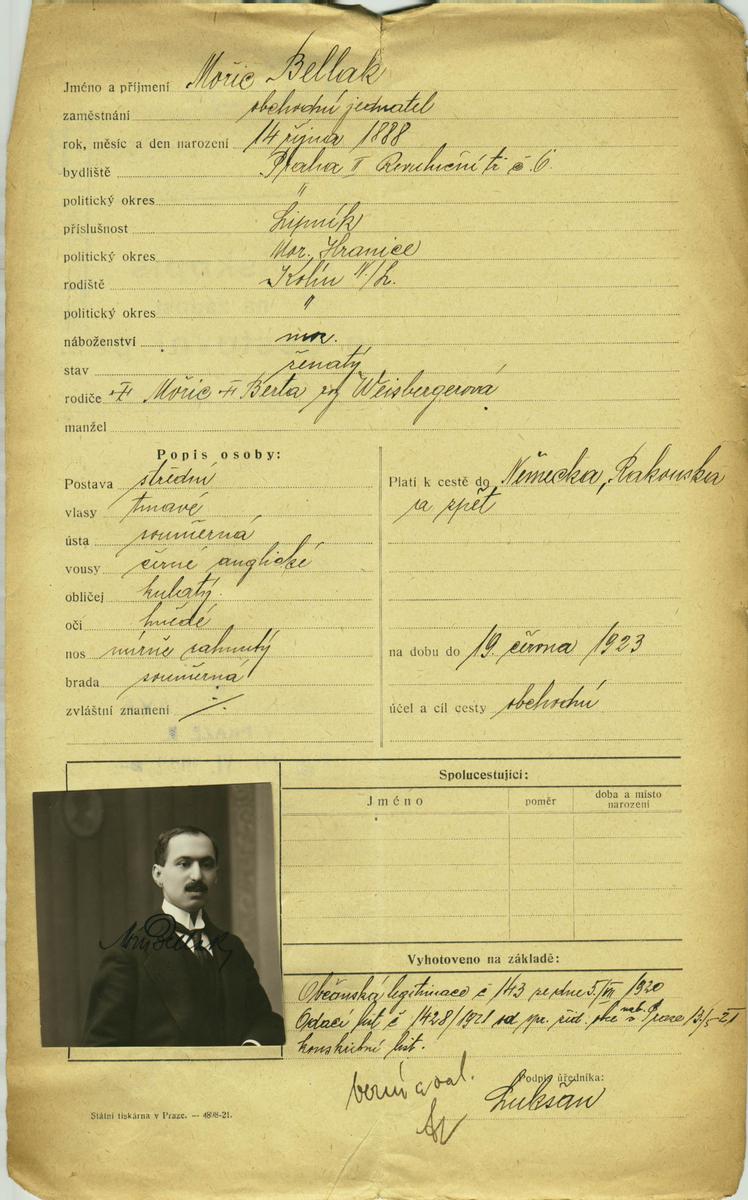 Jméno a příjmení Mořic Bellak
zaměstnání obchodní jednatel
rok, měsíc a den narození 14 října 1888
bydliště Praha II Revoluční tř. č. 6.
politický okres "
příslušnost Lipník
politický okres Mor. Hranice
rodiště Kolín IV./L.
politický okres "
náboženství moz.
stav ženatý
rodiče Mořic Berta roz Weisbergerová
manžel
Popis osoby:
Postava střední
vlasy tmavé
ústa souměrná
vousy černé anglické
obličej kulatý.
oči hnědé
nos mírně zahnutý
brada souměrná
zvláštní znamení ./.
Platí k cestě do Německa, Rakouska
a zpět
na dobu do 19. června 1923
účel a cíl cesty obchodní
Spolucestující:
Jméno
poměr
doba a místo
narození
Bellak
Vyhotoveno na základě:
Občanská legitimace č 143 ze dne 5./VII 1920
Oddací list č 1428/1921 od spr. žid. obce náb. v Praze 13./5-21
konskribční list.
Podpis úředníka:
Lukšan
Státní tiskárna v Praze. — 4898-21.